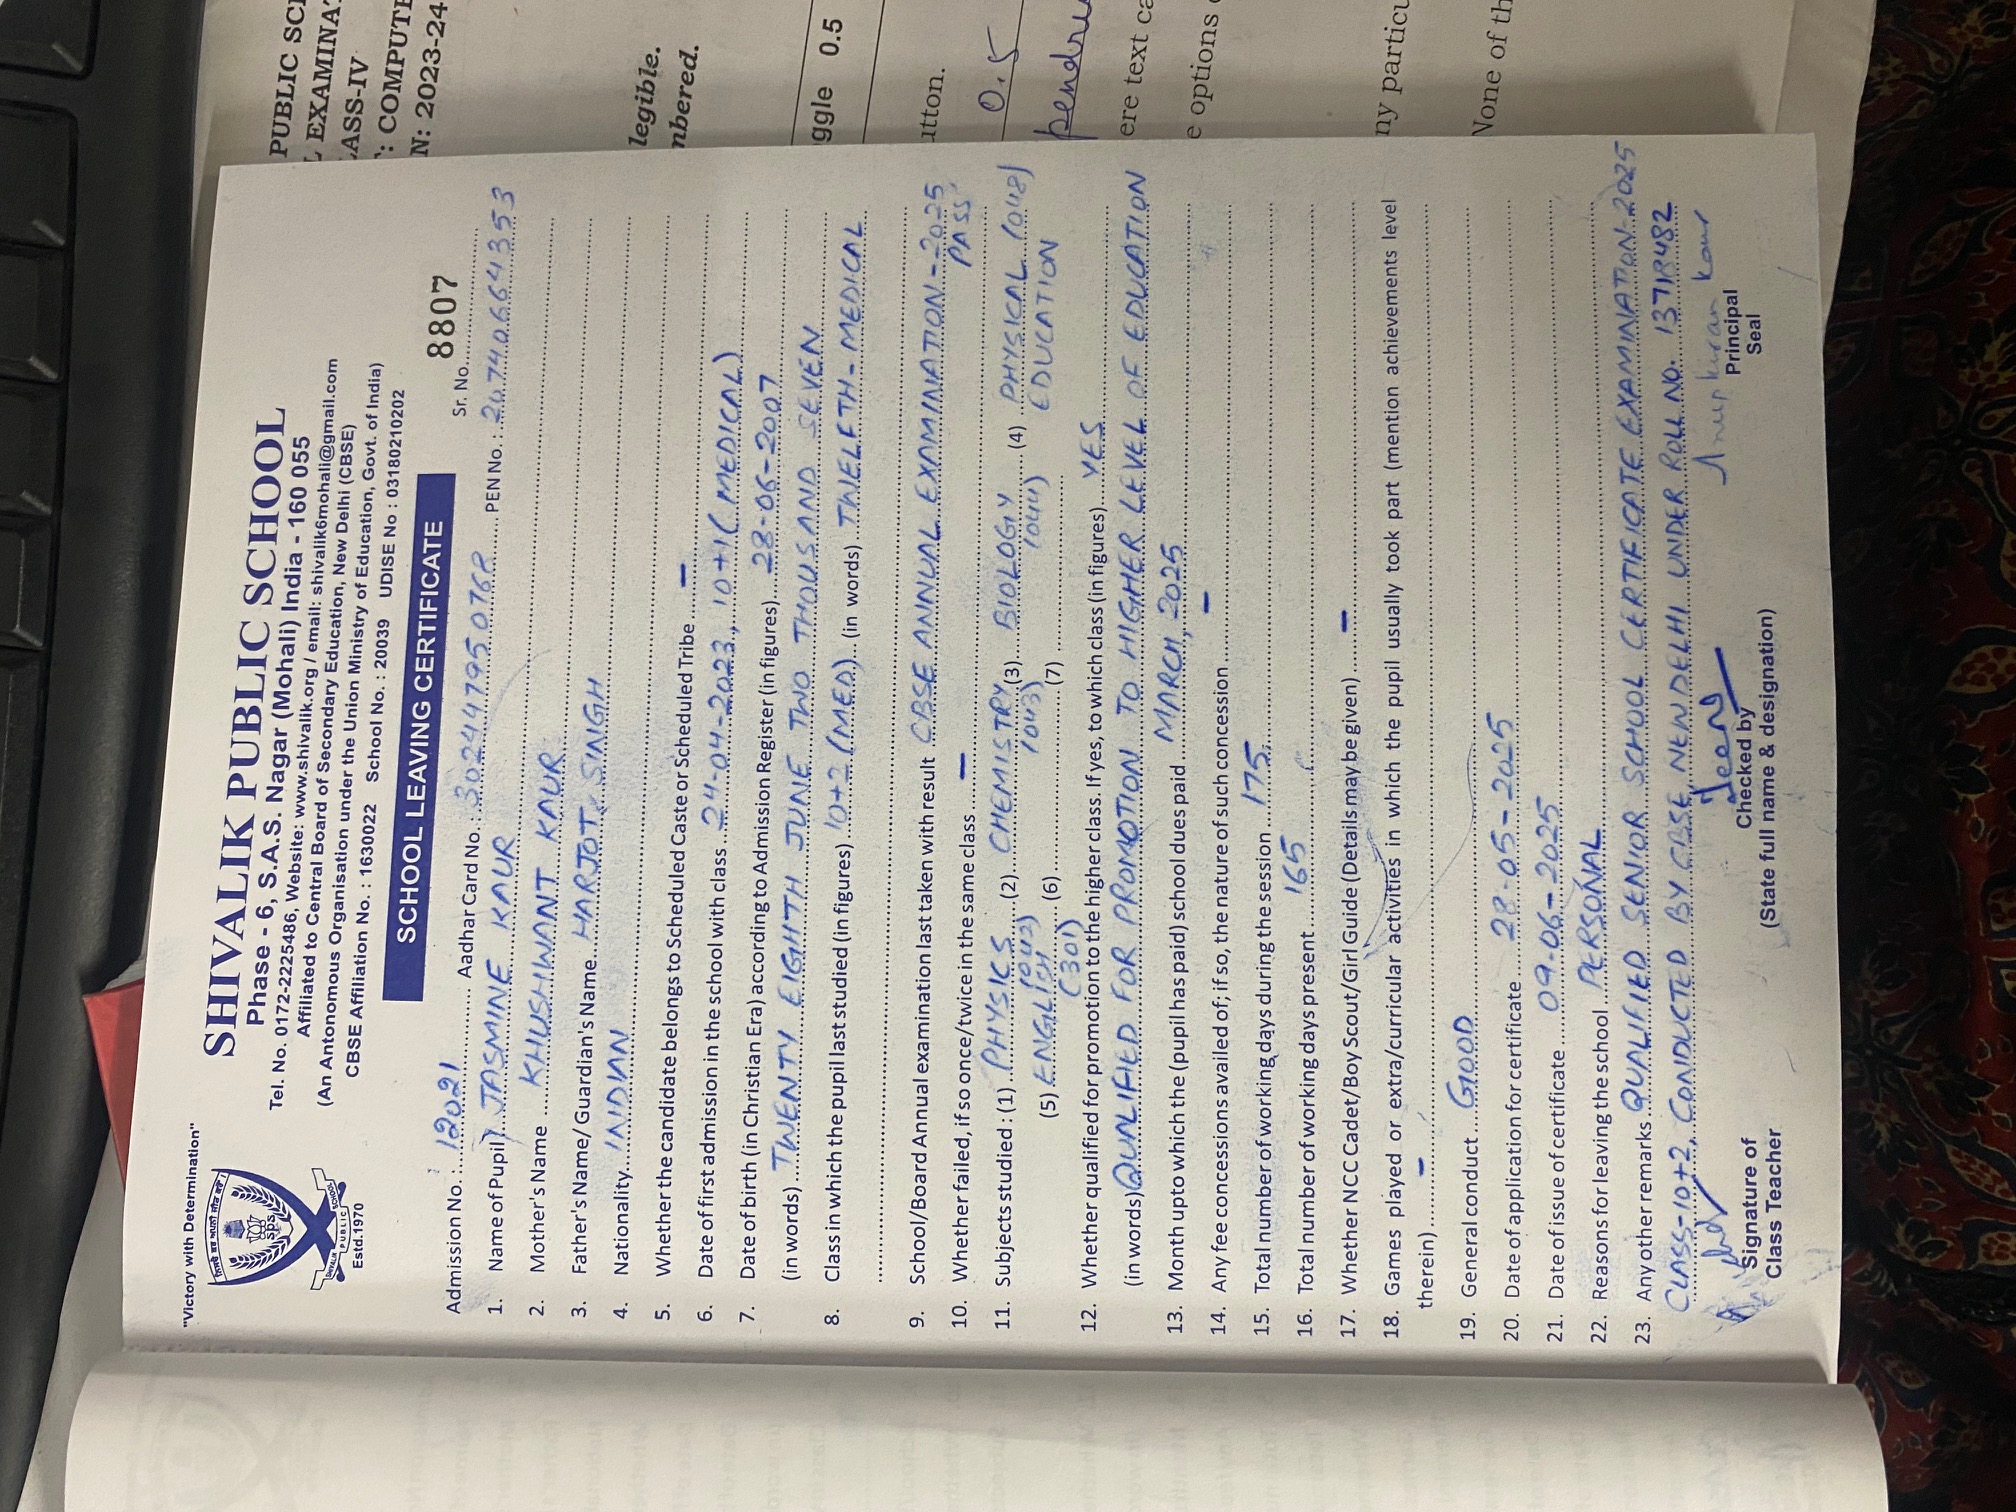 "Victory with Determination"
SHIVALIK PUBLIC SCHOOL
Phase - 6, S.A.S. Nagar (Mohali) India - 160 055
Tel. No. 0172-2225486, Website: www.shivalik.org / email: shivalik6mohali@gmail.com
Affiliated to Central Board of Secondary Education, New Delhi (CBSE)
(An Antonomous Organisation under the Union Ministry of Education, Govt. of India)
CBSE Affiliation No. : 1630022 School No. : 20039 UDISE No : 03180210202
sps
SHIVALIK PUBLIC SCHOOL
Estd.1970
SCHOOL LEAVING CERTIFICATE
Sr. No. 8807
Admission No. : 12021 Aadhar Card No. : 302447950768 PEN No. : 20740664353
1. Name of Pupil JASMINE KAUR
2. Mother's Name KHUSHWANT KAUR
3. Father's Name/ Guardian's Name HARJOT SINGH
4. Nationality INDIAN
5. Whether the candidate belongs to Scheduled Caste or Scheduled Tribe -
6. Date of first admission in the school with class 24-04-2023, 10+1 (MEDICAL)
7. Date of birth (in Christian Era) according to Admission Register (in figures) 28-06-2007
(in words) TWENTY EIGHTH JUNE TWO THOUSAND SEVEN
8. Class in which the pupil last studied (in figures) 10+2 (MED.) (in words) TWELFTH-MEDICAL
9. School/Board Annual examination last taken with result CBSE ANNUAL EXAMINATION-2025 PASS
10. Whether failed, if so once/twice in the same class -
11. Subjects studied : (1) PHYSICS (042) (2) CHEMISTRY (043) (3) BIOLOGY (044) (4) PHYSICAL EDUCATION (048)
(5) ENGLISH (301) (6) (7)
12. Whether qualified for promotion to the higher class. If yes, to which class (in figures) YES
(in words) QUALIFIED FOR PROMOTION TO HIGHER LEVEL OF EDUCATION
13. Month upto which the (pupil has paid) school dues paid MARCH, 2025
14. Any fee concessions availed of; if so, the nature of such concession -
15. Total number of working days during the session 175
16. Total number of working days present 165
17. Whether NCC Cadet/Boy Scout/Girl Guide (Details may be given) -
18. Games played or extra/curricular activities in which the pupil usually took part (mention achievements level
therein) -
19. General conduct GOOD
20. Date of application for certificate 28-05-2025
21. Date of issue of certificate 09-06-2025
22. Reasons for leaving the school PERSONAL
23. Any other remarks QUALIFIED SENIOR SCHOOL CERTIFICATE EXAMINATION-2025
CLASS-10+2, CONDUCTED BY CBSE NEW DELHI UNDER ROLL NO.
Anupkiran Kaur
Signature of
Class Teacher
Checked by
(State full name & designation)
Principal
Seal
PUBLIC SC
EXAMINA
ASS-IV
: COMPUTE
N: 2023-24
legible.
mbered.
ggle 0.5
utton.
0.5
pendri
ere text ca
e options
ny particu
None of th